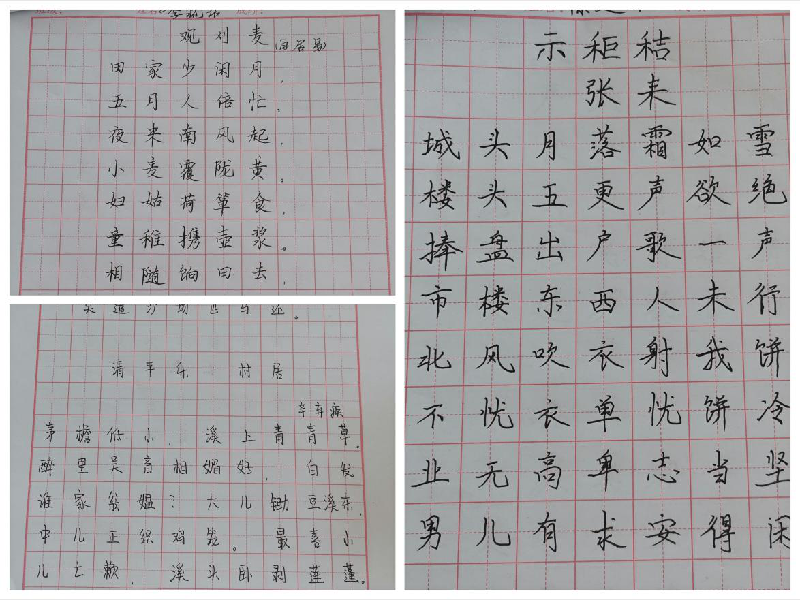 观刈麦(白居易)
田家少闲月，
五月人倍忙。
夜来南风起，
小麦覆陇黄。
妇姑荷箪食，
童稚携壶浆。
相随饷田去，
清平乐 村居
辛弃疾
茅檐低小，溪上青青草。
醉里吴音相媚好，白发
谁家翁媪？大儿锄豆溪东，
中儿正织鸡笼。最喜小
儿亡赖，溪头卧剥莲蓬。
示秬秸
张耒
城头月落霜如雪
楼头五更声欲绝
捧盘出户歌一声
市楼东西人未行
北风吹衣射我饼
不忧衣单忧饼冷
业无高卑志当坚
男儿有求安得闲